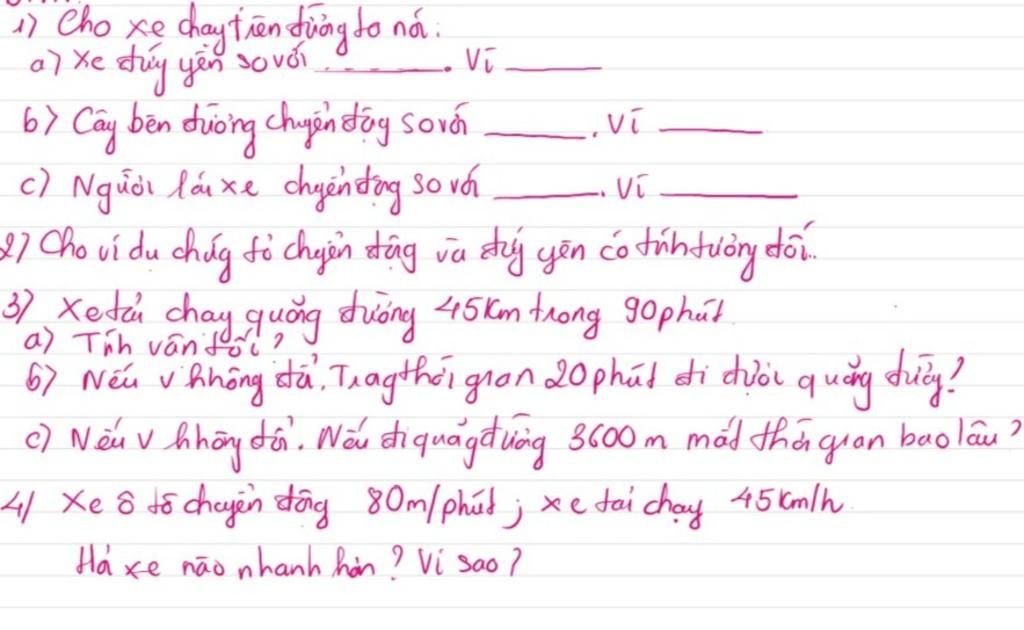 1) Cho xe chạy trên đường to nói:
a) Xe đứng yên so với ________. Vì ______
b) Cây bên đường chuyển động so với ______. Vì ______
c) Người lái xe chuyển động so với ______. Vì ________
2) Cho ví dụ chứng tỏ chuyển động và đứng yên có tính tương đối..
3) Xe tải chạy quãng đường 45Km trong 90 phút
a) Tính vân tốc?
b) Nếu v không đổi. Trong thời gian 20 phút đi được quãng đường?
c) Nếu v không đổi. Nếu đi quãng đường 3600 m mất thời gian bao lâu?
4/ Xe ô tô chuyển động 80m/phút; xe tải chạy 45Km/h
Hỏi xe nào nhanh hơn? Vì sao?